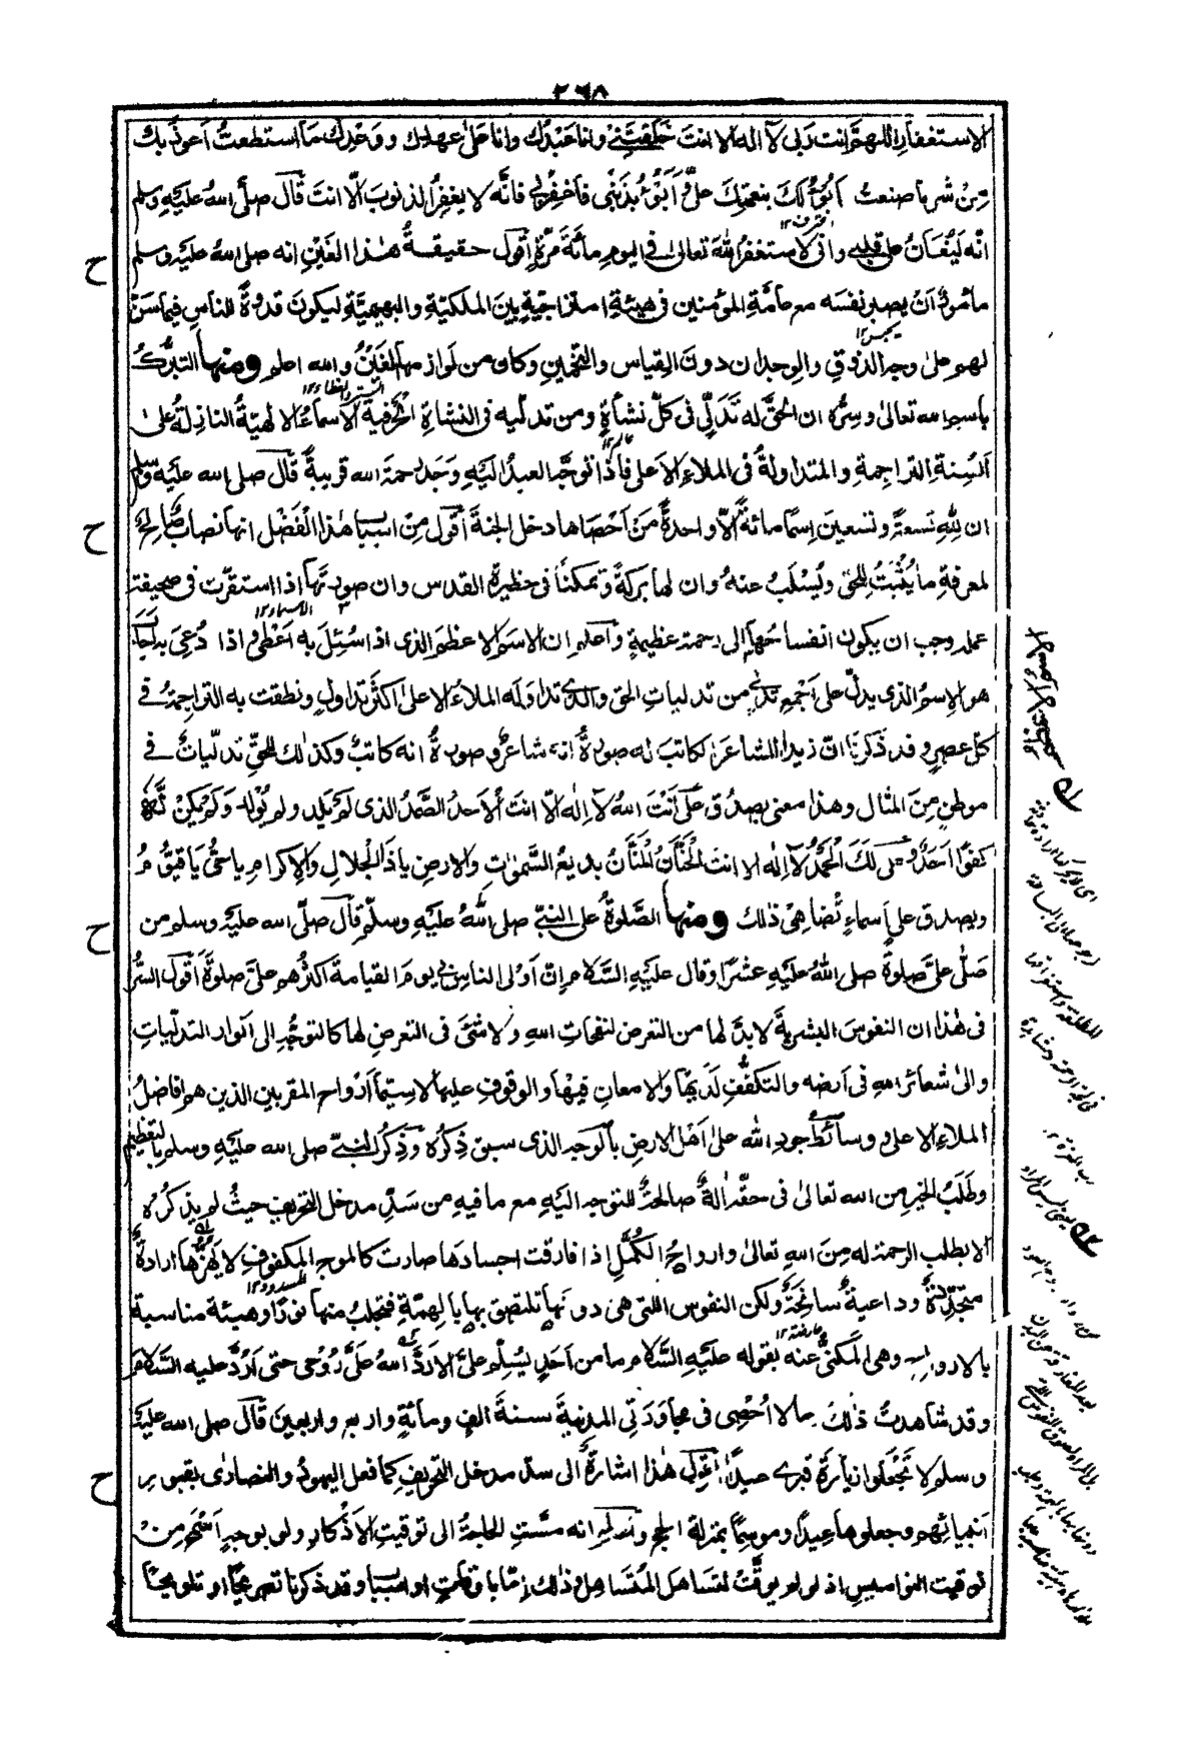 ٢٦٨
الاستغفار اللهم انت ربى لا اله الا انت خلقتنى وانا عبدك وانا على عهدك ووعدك ما استطعت اعوذ بك
من شر ما صنعت ابوء لك بنعمتك على وابوء بذنبى فاغفرلى فانه لا يغفر الذنوب الا انت قال صلى الله عليه وسلم
انه ليغان على قلبى وانى لاستغفر الله تعالى فى اليوم مائة مرة اقول حقيقة هذا الغين انه صلى الله عليه وسلم
مامور ان يصبر نفسه مع عامة المؤمنين فى هيئة امتزاجية بين الملكية والبهيمية ليكون قدوة للناس فيما سن
لهم على وجه الذوق والوجدان دون القياس والتخمين وكان من لوازمها الغين والله اعلم ومنها التبرك
باسم الله تعالى وسره ان الحق له تدلى فى كل نشأة ومن تدليه فى النشاة الحرفية الاسماء الالهية النازلة على
السنة التراجمة والمتداولة فى الملاء الاعلى فاذا توجه العبد اليه وجد رحمة الله قريبة قال صلى الله عليه وسلم
ان لله تسعة وتسعين اسما مائة الا واحدة من احصاها دخل الجنة اقول من اسباب هذا الفضل انها نصاب صالح
لمعرفة ما يثبت للحق ويسلب عنه وان لها بركة وتمكنا فى حظيرة القدس وان صورتها اذا استقرت فى صحيفة
عمله وجب ان يكون انفساحها الى رحمة عظيمة واعلم ان الاسم الاعظم الذى اذا سئل به اعطى واذا دعى به اجاب
هو الاسم الذى يدل على اجمع تدلى من تدليات الحق والذى تداوله الملاء الاعلى اكثر تداول ونطقت به التراجمة فى
كل عصر وقد ذكرنا ان زيدا الشاعر الكاتب له صورة انه شاعر وصورة انه كاتب وكذلك للحق تدليات فى
موطن من المثال وهذا معنى يصدق على انت الله لا اله الا انت الاحد الصمد الذى لم يلد ولم يولد ولم يكن له
كفوا احد وعلى لك الحمد لا اله الا انت الحنان المنان بديع السموات والارض ياذا الجلال والاكرام ياحى ياقيوم
ويصدق على اسماء تضاهى ذلك ومنها الصلوة على النبى صلى الله عليه وسلم قال صلى الله عليه وسلم من
صلى على صلوة صلى الله عليه عشرا وقال عليه السلام ان اولى الناس بى يوم القيامة اكثرهم على صلوة اقول السر
فى هذا ان النفوس البشرية لابد لها من التعرض لنفحات الله ولا شئ فى التعرض لها كالتوجه الى انوار التدليات
والى شعائر الله فى ارضه والتكفف لديها والامعان فيها والوقوف عليها لاسيما ارواح المقربين الذين هم افاضل
الملاء الاعلى ووسائط جود الله على اهل الارض بالوجه الذى سبق ذكره وذكر النبى صلى الله عليه وسلم بالتعظيم
وطلب الخير من الله تعالى فى حقه الة صالحة للتوجه اليه مع ما فيه من سد مدخل التحريف حيث لم يذكره
الا بطلب الرحمة له من الله تعالى وارواح الكمل اذا فارقت اجسادها صارت كالموج المكفوف لا يهزها ارادة
متجددة وداعية سانحة ولكن النفوس اللتى هى دونها تلتصق بها بالهمة فتجلب منها نورا وهيئة مناسبة
بالارواح وهى المكنى عنه بقوله عليه السلام ما من احد يسلم على الا رد الله على روحى حتى ارد عليه السلام
وقد شاهدت ذلك مالا احصى فى مجاورتى المدينة سنة الف ومائة واربع واربعين قال صلى الله عليه
وسلم لا تجعلوا زيارة قبرى عيدا اقول هذا اشارة الى سد مدخل التحريف كما فعل اليهود والنصارى بقبور
انبيائهم وجعلوها عيدا وموسما بمنزلة الحج واعلم انه مست الحاجة الى توقيت الاذكار ولو بوجه اسمح من
توقيت النواميس اذ لو لم يوقت لتساهل المتساهل وذلك اما باوقات او اسباب وقد ذكرنا تصريحا او تلويحا
ح
ح
ح
ح